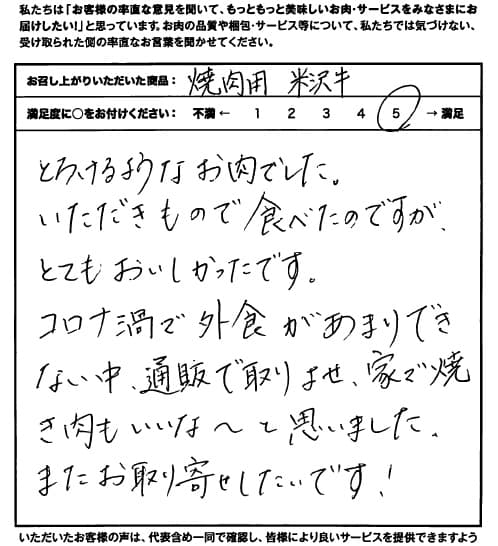 私たちは「お客様の率直な意見を聞いて、もっともっと美味しいお肉・サービスをみなさまにお
届けしたい!」と思っています。お肉の品質や梱包・サービス等について、私たちでは気づけない、
受け取られた側の率直なお言葉を聞かせてください。
お召し上がりいただいた商品: 焼肉用 米沢牛
満足度に○をお付けください: 不満 ← 1 2 3 4 5 → 満足
とろけるようなお肉でした。
いただきもので食べたのですが、
とてもおいしかったです。
コロナ渦で外食があまりでき
ない中、通販で取りよせ、家で焼
き肉もいいな〜と思いました。
またお取り寄せしたいです!
いただいたお客様の声は、代表含め一同で確認し、皆様により良いサービスを提供できますよう